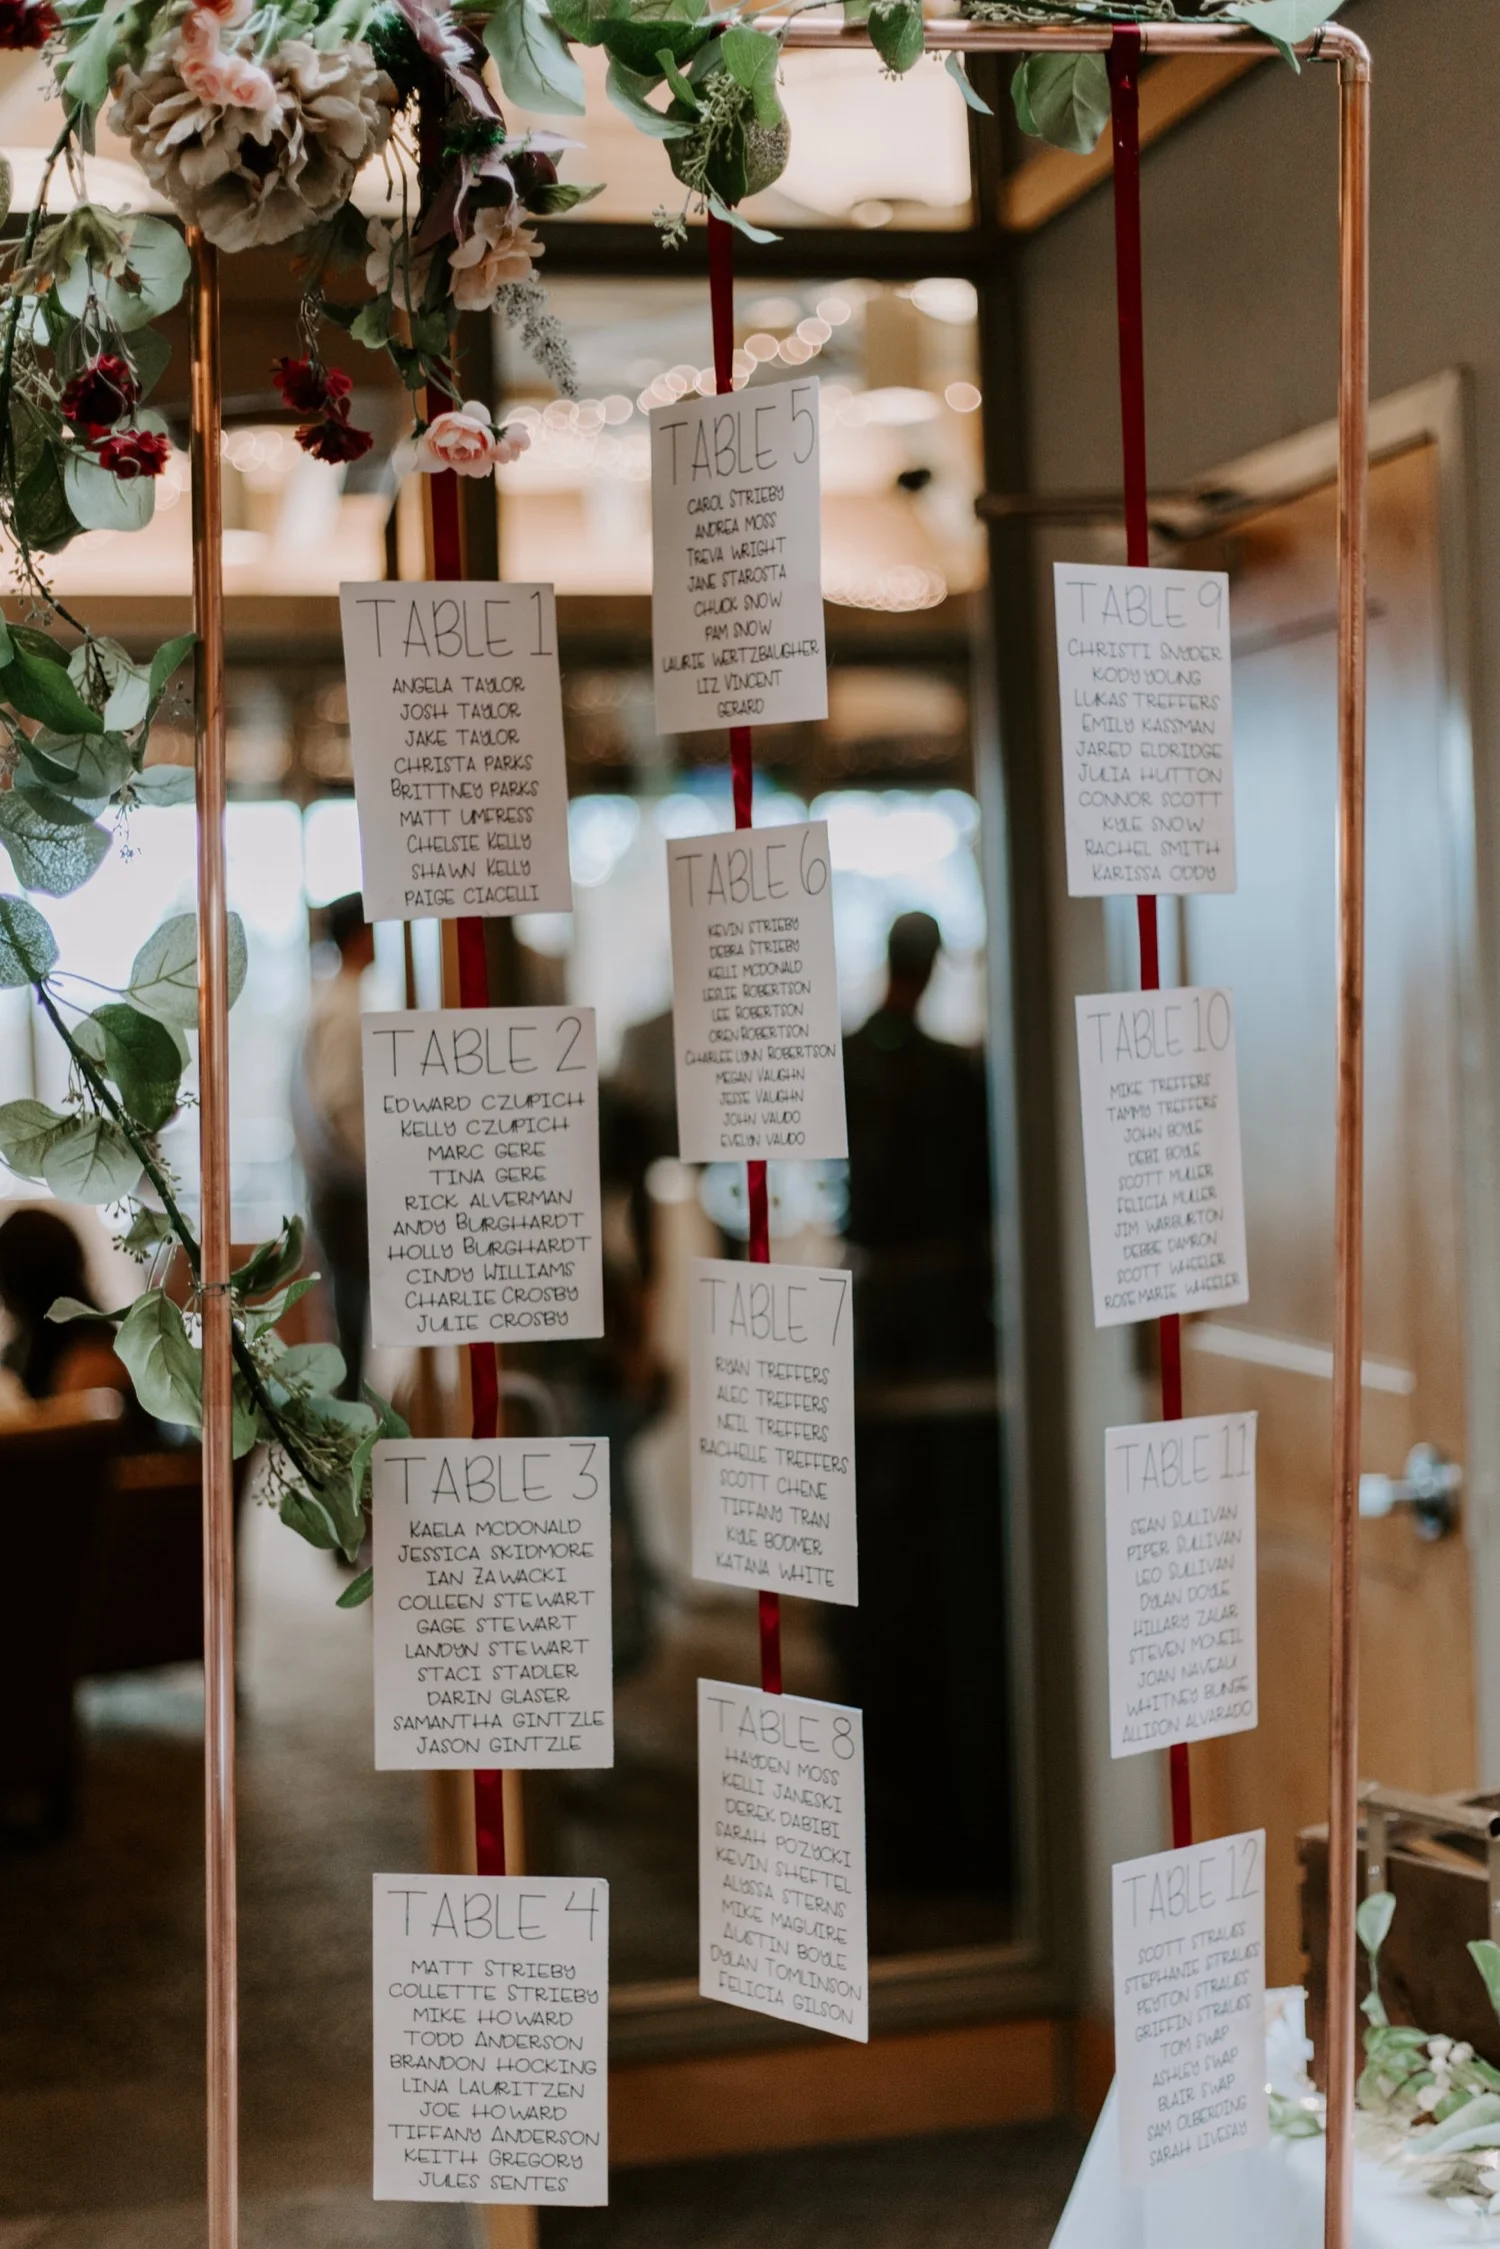 TABLE 1
ANGELA TAYLOR
JOSH TAYLOR
JAKE TAYLOR
CHRISTA PARKS
BRITTNEY PARKS
MATT UMFRESS
CHELSIE KELLY
SHAWN KELLY
PAIGE CIACELLI
TABLE 2
EDWARD CZUPICH
KELLY CZUPICH
MARC GERE
TINA GERE
RICK ALVERMAN
ANDY BURGHARDT
HOLLY BURGHARDT
CINDY WILLIAMS
CHARLIE CROSBY
JULIE CROSBY
TABLE 3
KAELA MCDONALD
JESSICA SKIDMORE
IAN ZAWACKI
COLLEEN STEWART
GAGE STEWART
LANDYN STEWART
STACI STADLER
DARIN GLASER
SAMANTHA GINTZLE
JASON GINTZLE
TABLE 4
MATT STRIEBY
COLLETTE STRIEBY
MIKE HOWARD
TODD ANDERSON
BRANDON HOCKING
LINA LAURITZEN
JOE HOWARD
TIFFANY ANDERSON
KEITH GREGORY
JULES SENTES
TABLE 5
CAROL STRIEBY
ANDREA MOSS
TREVA WRIGHT
JANE STAROSTA
CHUCK SNOW
PAM SNOW
LAURIE WERTZBAUGHER
LIZ VINCENT
GERARD
TABLE 6
KEVIN STRIEBY
DEBRA STRIEBY
KELLI MCDONALD
LESLIE ROBERTSON
LEE ROBERTSON
OREN ROBERTSON
CHARLEE LYNN ROBERTSON
MEGAN VAUGHN
JESSE VAUGHN
JOHN VAUDO
EVELYN VAUDO
TABLE 7
RYAN TREFFERS
ALEC TREFFERS
NEIL TREFFERS
RACHELLE TREFFERS
SCOTT CHENE
TIFFANY TRAN
KYLE BODMER
KATANA WHITE
TABLE 8
HAYDEN MOSS
KELLI JANESKI
DEREK DABIBI
SARAH POZYCKI
KEVIN SHEFTEL
ALYSSA STERNS
MIKE MAGUIRE
AUSTIN BOYLE
DYLAN TOMLINSON
FELICIA GILSON
TABLE 9
CHRISTI SNYDER
KODY YOUNG
LUKAS TREFFERS
EMILY KASSMAN
JARED ELDRIDGE
JULIA HUTTON
CONNOR SCOTT
KYLE SNOW
RACHEL SMITH
KARISSA ODDY
TABLE 10
MIKE TREFFERS
TAMMY TREFFERS
JOHN BOYLE
DEBI BOYLE
SCOTT MULLER
FELICIA MULLER
JIM WARBURTON
DEBBE DAMRON
SCOTT WHEELER
ROSE MARIE WHEELER
TABLE 11
SEAN SULLIVAN
PIPER SULLIVAN
LEO SULLIVAN
DYLAN DOYLE
HILLARY ZALAR
STEVEN MCNEIL
JOAN NAVEAU
WHITNEY BUNGE
ALLISON ALVARADO
TABLE 12
SCOTT STRAUSS
STEPHANIE STRAUSS
PEYTON STRAUSS
GRIFFIN STRAUSS
TOM SWAP
ASHLEY SWAP
BLAIR SWAP
SAM OLBERDING
SARAH LIVESAY